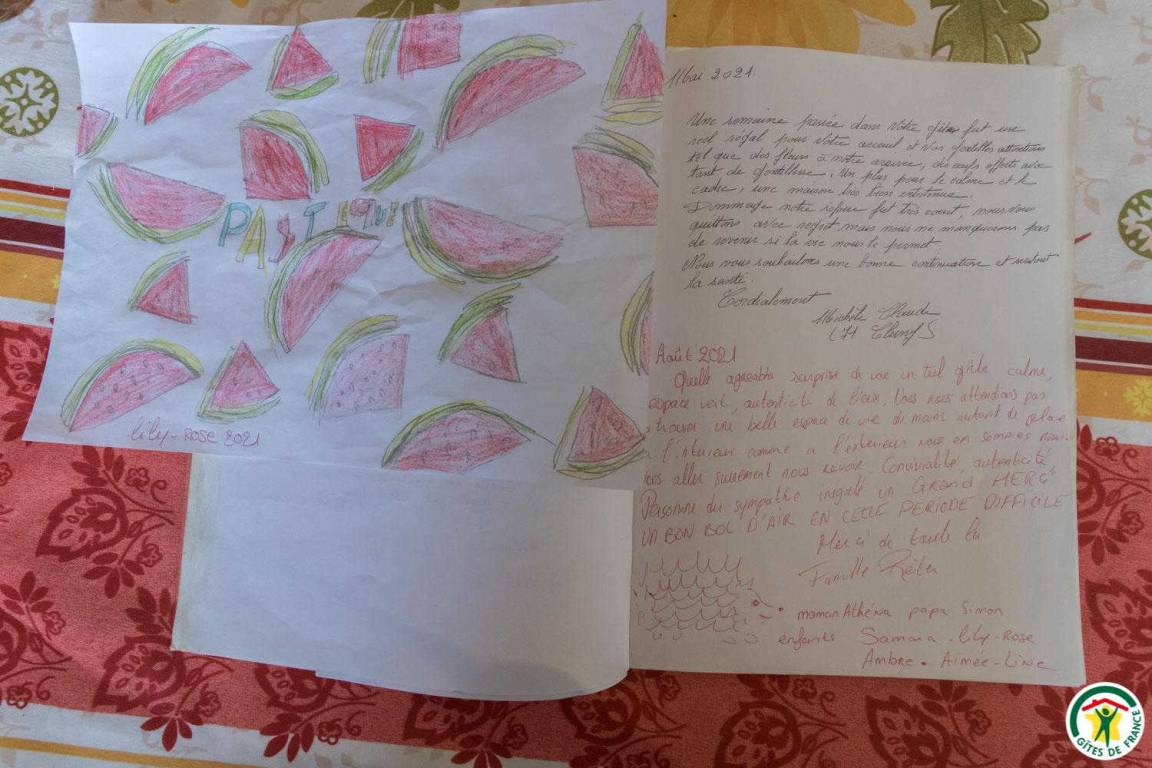 PASTEQUE
lily-rose 2021
Mai 2021.
Une semaine passée dans Votre gîte fut une
réel régal pour Votre accueil et Vos gentilles attentions
tel que des fleurs à notre arrivée, des oeufs offerts avec
tant de gentillesse. Un plus pour le calme et le
cadre, une maison très bien entretenue.
Dommage notre séjour fut très court, nous vous
quittons avec regret mais nous ne manquerons pas
de revenir si la vie nous le permet.
Nous vous souhaitons une bonne continuation et surtout
la santé.
Cordialement
Michèle Claude
(71 Cluny)
Août 2021
Quelle agréable surprise de voir un tel gîte calme,
espace vert, autenticité de lieux. Nous nous attendions pas
a trouver une belle espace de vie du moins autant de
a l'interieur comme a l'exterieur nous en sommes
allez surement nous revoir. Convivialité, autenticité,
Personne du sympathie un Grand MERCI
UN BON BOL D'AIR EN CETTE PERIODE DIFFICILE
Merci de toute la
Famille
maman Athéna papa Simon
enfants Samara lily-Rose
Ambre. Aimée-Line
GÎTES DE FRANCE